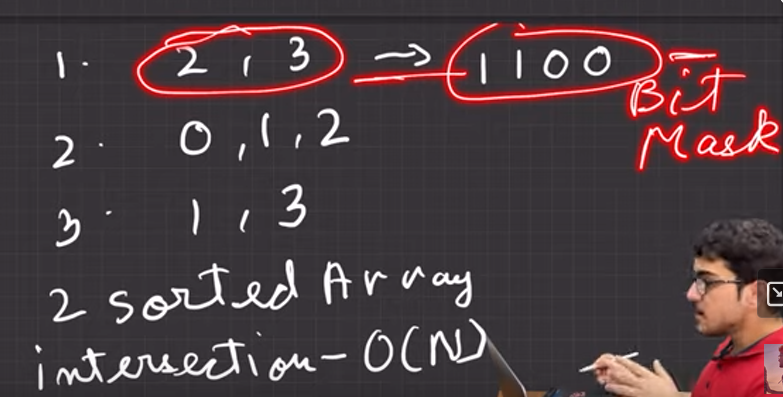 1. 2, 3 → 1100 - Bit Mask
2. 0, 1, 2
3. 1, 3
2 sorted Array
intersection - O(N)